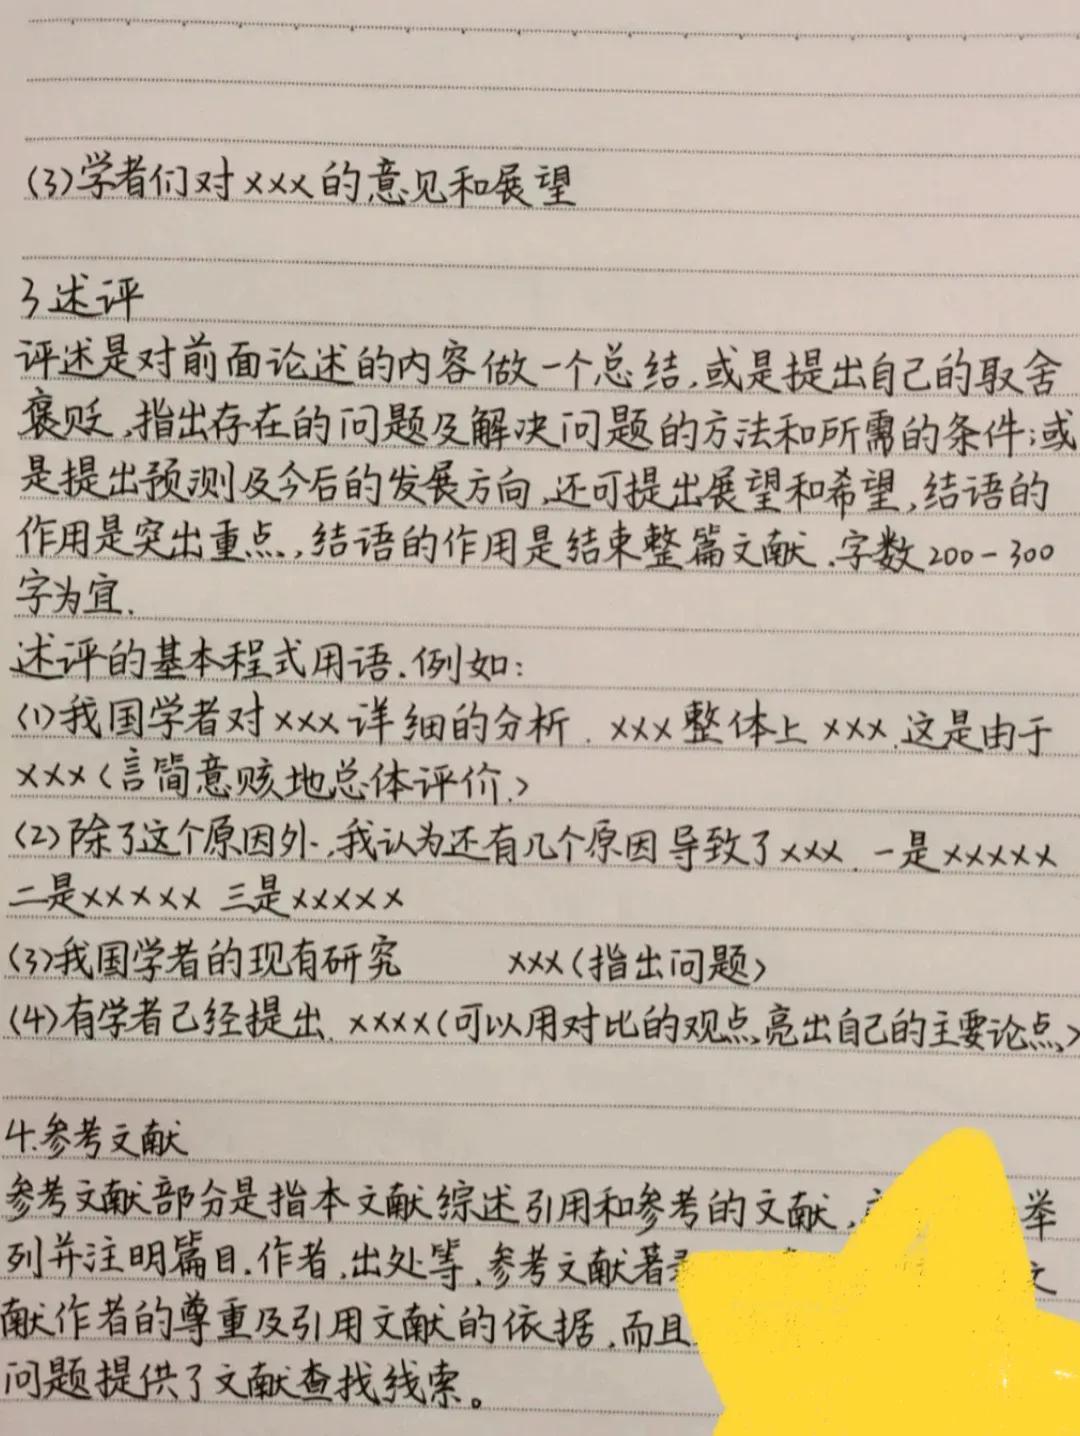 (3)学者们对×××的意见和展望
3述评
评述是对前面论述的内容做一个总结,或是提出自己的取舍
褒贬,指出存在的问题及解决问题的方法和所需的条件;或
是提出预测及今后的发展方向,还可提出展望和希望,结语的
作用是突出重点,结语的作用是结束整篇文献.字数200-300
字为宜.
述评的基本程式用语.例如:
(1)我国学者对×××详细的分析.×××整体上×××.这是由于
×××(言简意赅地总体评价.)
(2)除了这个原因外,我认为还有几个原因导致了×××.一是×××××
二是××××× 三是×××××
(3)我国学者的现有研究 ×××(指出问题)
(4)有学者已经提出.××××(可以用对比的观点,亮出自己的主要论点,)
4.参考文献
参考文献部分是指本文献综述引用和参考的文献, 举
列并注明篇目.作者,出处等,参考文献著
献作者的尊重及引用文献的依据,而且
问题提供了文献查找线索。